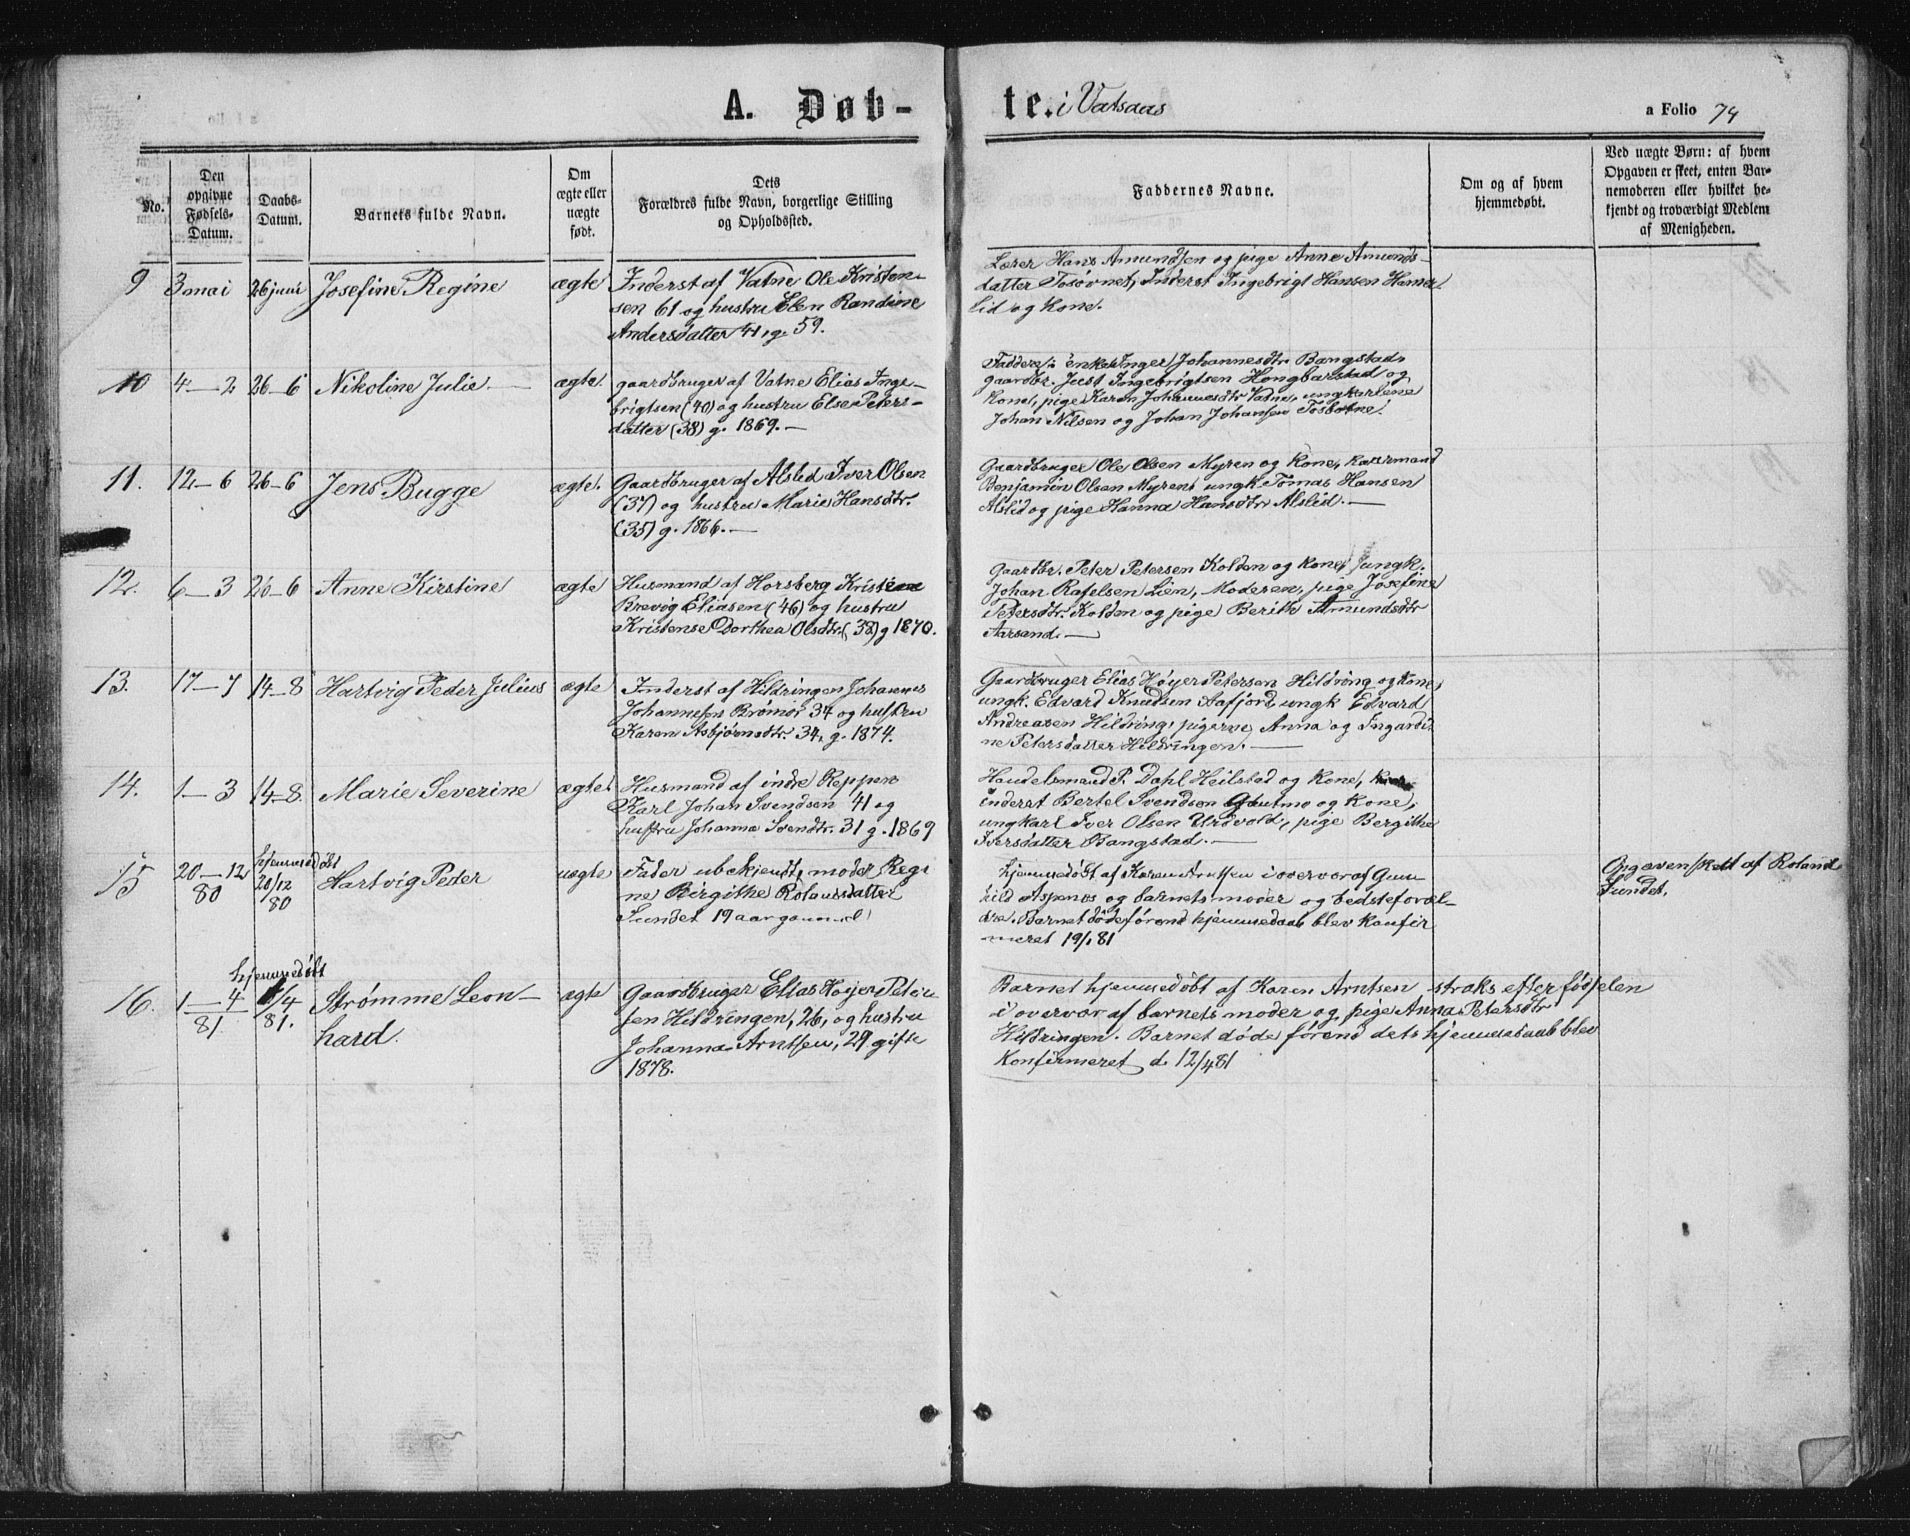 A. Døb-
te. i Vatsaas
a Folio 74
No.
Den opgivne Fødsels-Datum.
Daabs-Datum.
Barnets fulde Navn.
Om ægte eller uægte født.
Dets Forældres fulde Navn, borgerlige Stilling og Opholdssted.
Faddernes Navne.
Om og af hvem hjemmedøbt.
Ved uægte Børn: af hvem Opgaven er skeet, enten Barnemoderen eller hvilket bekjendt og troværdigt Medlem af Menigheden.
9 3 mai 26 juni Josefine Regine ægte
Inderst af Vatne Ole Kristen-
sen 61 og hustru Elen Randine
Andersdatter 41, g. 59.
Lærer Hans Amundsen og pige Anne Amunds-
datter Tosovnet, Inderst Ingebrigt Hansen Hamer-
lid og kone.
10 4–2 26–6 Nikoline Julie.— ægte.
gaardbruger af Vatne Elias Inge-
brigtsen (40) og hustru Else Peters-
datter (38) g. 1869.—
Faddere: enke Inger Johannesdtr. Bangstad,
gaardbr. Just Ingebrigtsen Hongbarstad og
kone, pige Karen Johannesdtr Vatne, ungkarlene
Johan Nilsen og Johan Johansen Tosbotne.
11. 12–6 26–6 Jens Bugge ægte.
Gaardbruger af Alslid Iver Olsen
(37) og hustru Marie Hansdtr.
(35) g. 1866.—
Gaardbruger Ole Olsen Myren og kone,
Benjamin Olsen Myren, ungk. Tomas Hansen
Alslid og pige Hanna Hansdtr Alslid.—
12. 6–3 26–6 Anne Kirstine ægte
Husmand af Horsberg Kristian
Brevig Eliasen (46) og hustru
Kristense Dorthea Olsdtr. (38) g 1870.
Gaardbr. Peter Petersen Kolden og kone, Jungk.
Johan Rafelsen Lien, Moderen, pige Josefine
Petersdtr. Kolden og pige Berith Amundsdtr
Aarsand.—
13. 17–7 14–8 Hartvig Peder Julius ægte
Inderst af Hildringen Johannes
Johannesen Brømør 34 og hustru
Karen Asbjørnsdtr. 34, g. 1874.
Gaardbruger Elias Høyer Petersen Hildring og kone,
ungk. Edvard Knudsen Aafjord, ungk Edvard
Andreasen Hildring, pigerne Anna og Ingardi-
ne Petersdatter Hildringen.—
14. 1–3 14–8. Marie Severine ægte.
Husmand af indre Reppen
Karl Johan Svendsen 41 og
hustru Johanna Svendtr. 31 g. 1869
Handelsmand P. Dahl Heilstad og kone,
inderst Bertel Svendsen Gautmo og kone,
ungkarl Iver Olsen Urdvold, pige Bergithe
Iversdatter Bangstad.—
15 20–12 80 hjemmedøbt 20/12 80 Hartvig Peder uægte
Fader ubekjendt, moder Regi
ne Birgithe Rolandsdatter
Sundet 19 aar gammel
hjemmedøbt af Karen Arntsen i overvær af Gun
hild Aspenos og barnets moder og bedsteforæl-
dre. Barnet døde førend hjemmedaab blev konfir
meret 19/1 81
Opgaven skeet af Roland
Sundet.
16. 1–4 81 hjemmedøbt 1/4 81. Strømme Leon-
hard. ægte
Gaardbruger Elias Høyer Peter
sen Hildringen, 26, og hustru
Johanna Arntsen, 29 gifte
1878.
Barnet hjemmedøbt af Karen Arntsen straks efter fødselen
i overvær af barnets moder og pige Anna Petersdtr
Hildringen. Barnet døde førend dets hjemmedaab blev
konfirmeret d. 12/4 81